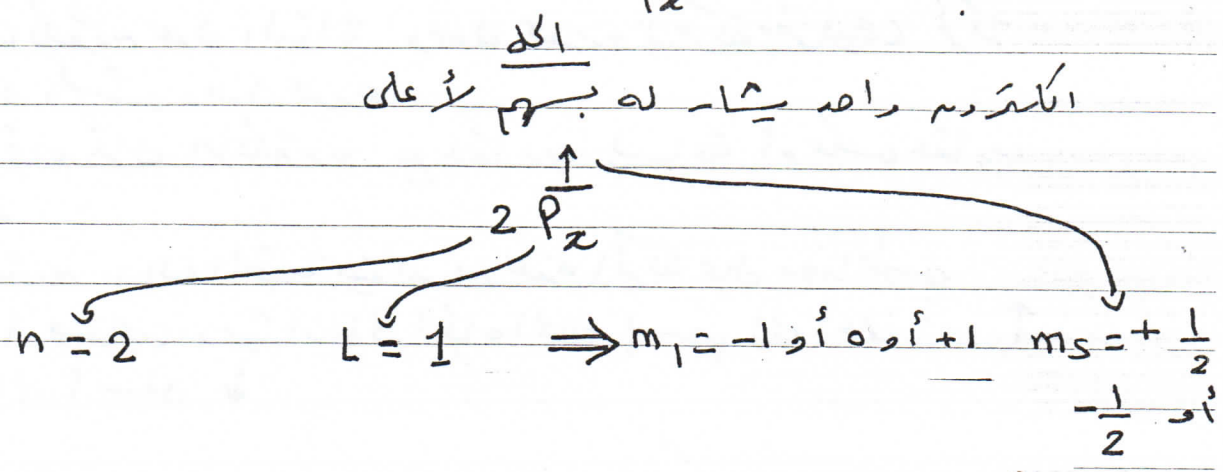 x
الحل
الكترون واحد يشار له بسهم لأعلى
↑
2 Px
n = 2 L = 1 ⟹ m₁ = -1 أو 0 أو +1 ms = + 1/2
أو - 1/2